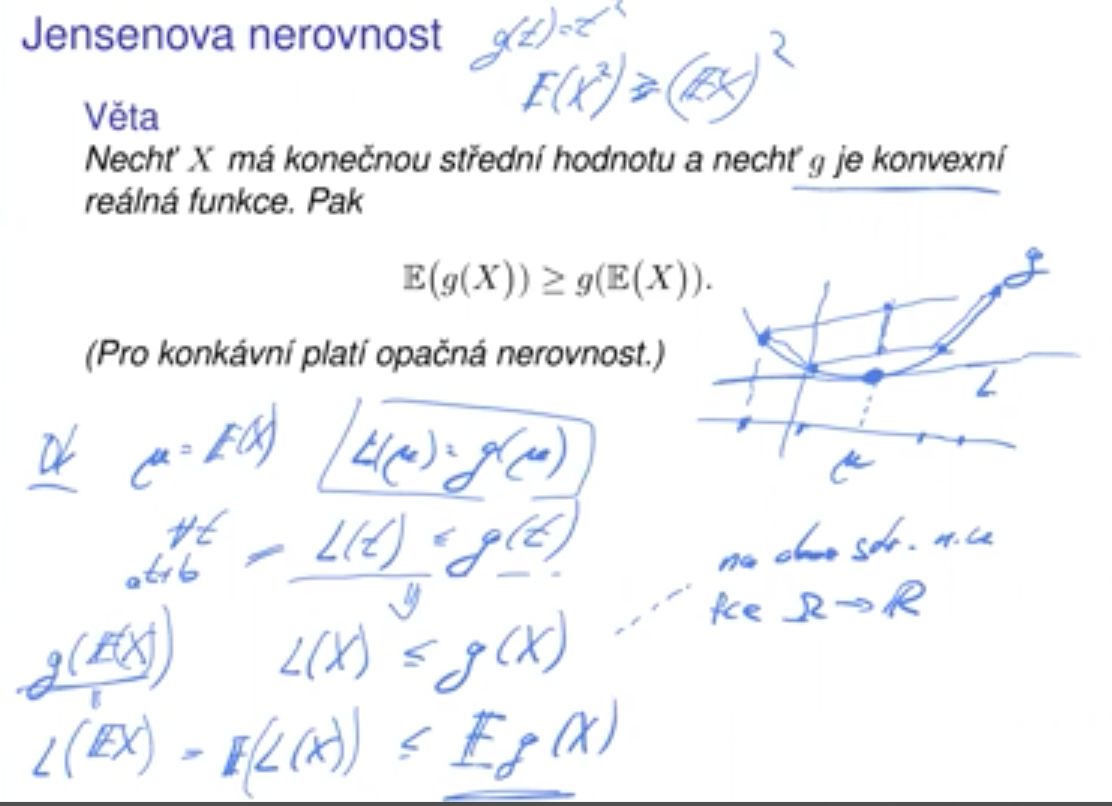 Jensenova nerovnost
g(t)=t²
E(X²) ≥ (EX)²
Věta
Nechť X má konečnou střední hodnotu a nechť g je konvexní
reálná funkce. Pak
𝔼(g(X)) ≥ g(𝔼(X)).
(Pro konkávní platí opačná nerovnost.)
g
L
μ
Dk μ = E(X) L(μ) = g(μ)
∀t
at+b = L(t) ≤ g(t)
na str. n.
fce Ω → R
g(E(X)) L(X) ≤ g(X)
"
L(EX) = E(L(X)) ≤ E g(X)